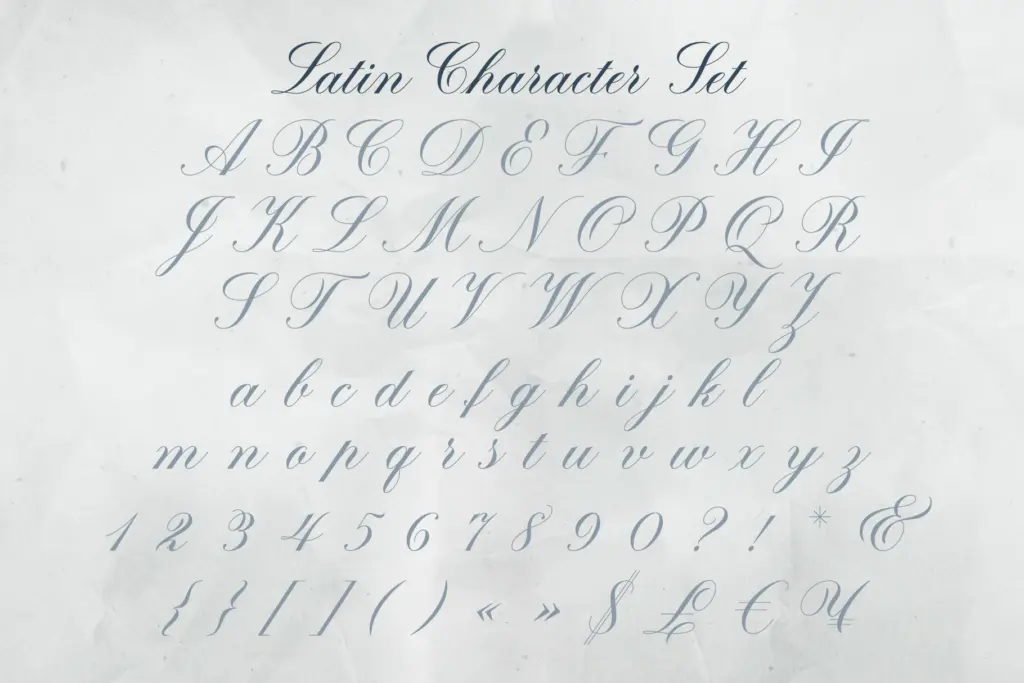 Latin Character Set
A B C D E F G H I
J K L M N O P Q R
S T U V W X Y Z
a b c d e f g h i j k l
m n o p q r s t u v w x y z
1 2 3 4 5 6 7 8 9 0 ? ! * &
{ } [ ] ( ) « » $ £ € ¥